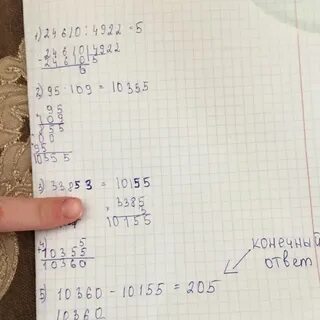 1) 24610 : 4922 - 5
24610|4922
- 24610|5
0
2) 95 · 109 = 10355
95
109
855
00
95
10355
3) 33853 = 10155
3385
10155
4)
5
10355
10360
конечный
ответ
5) 10360 - 10155 = 205
10360